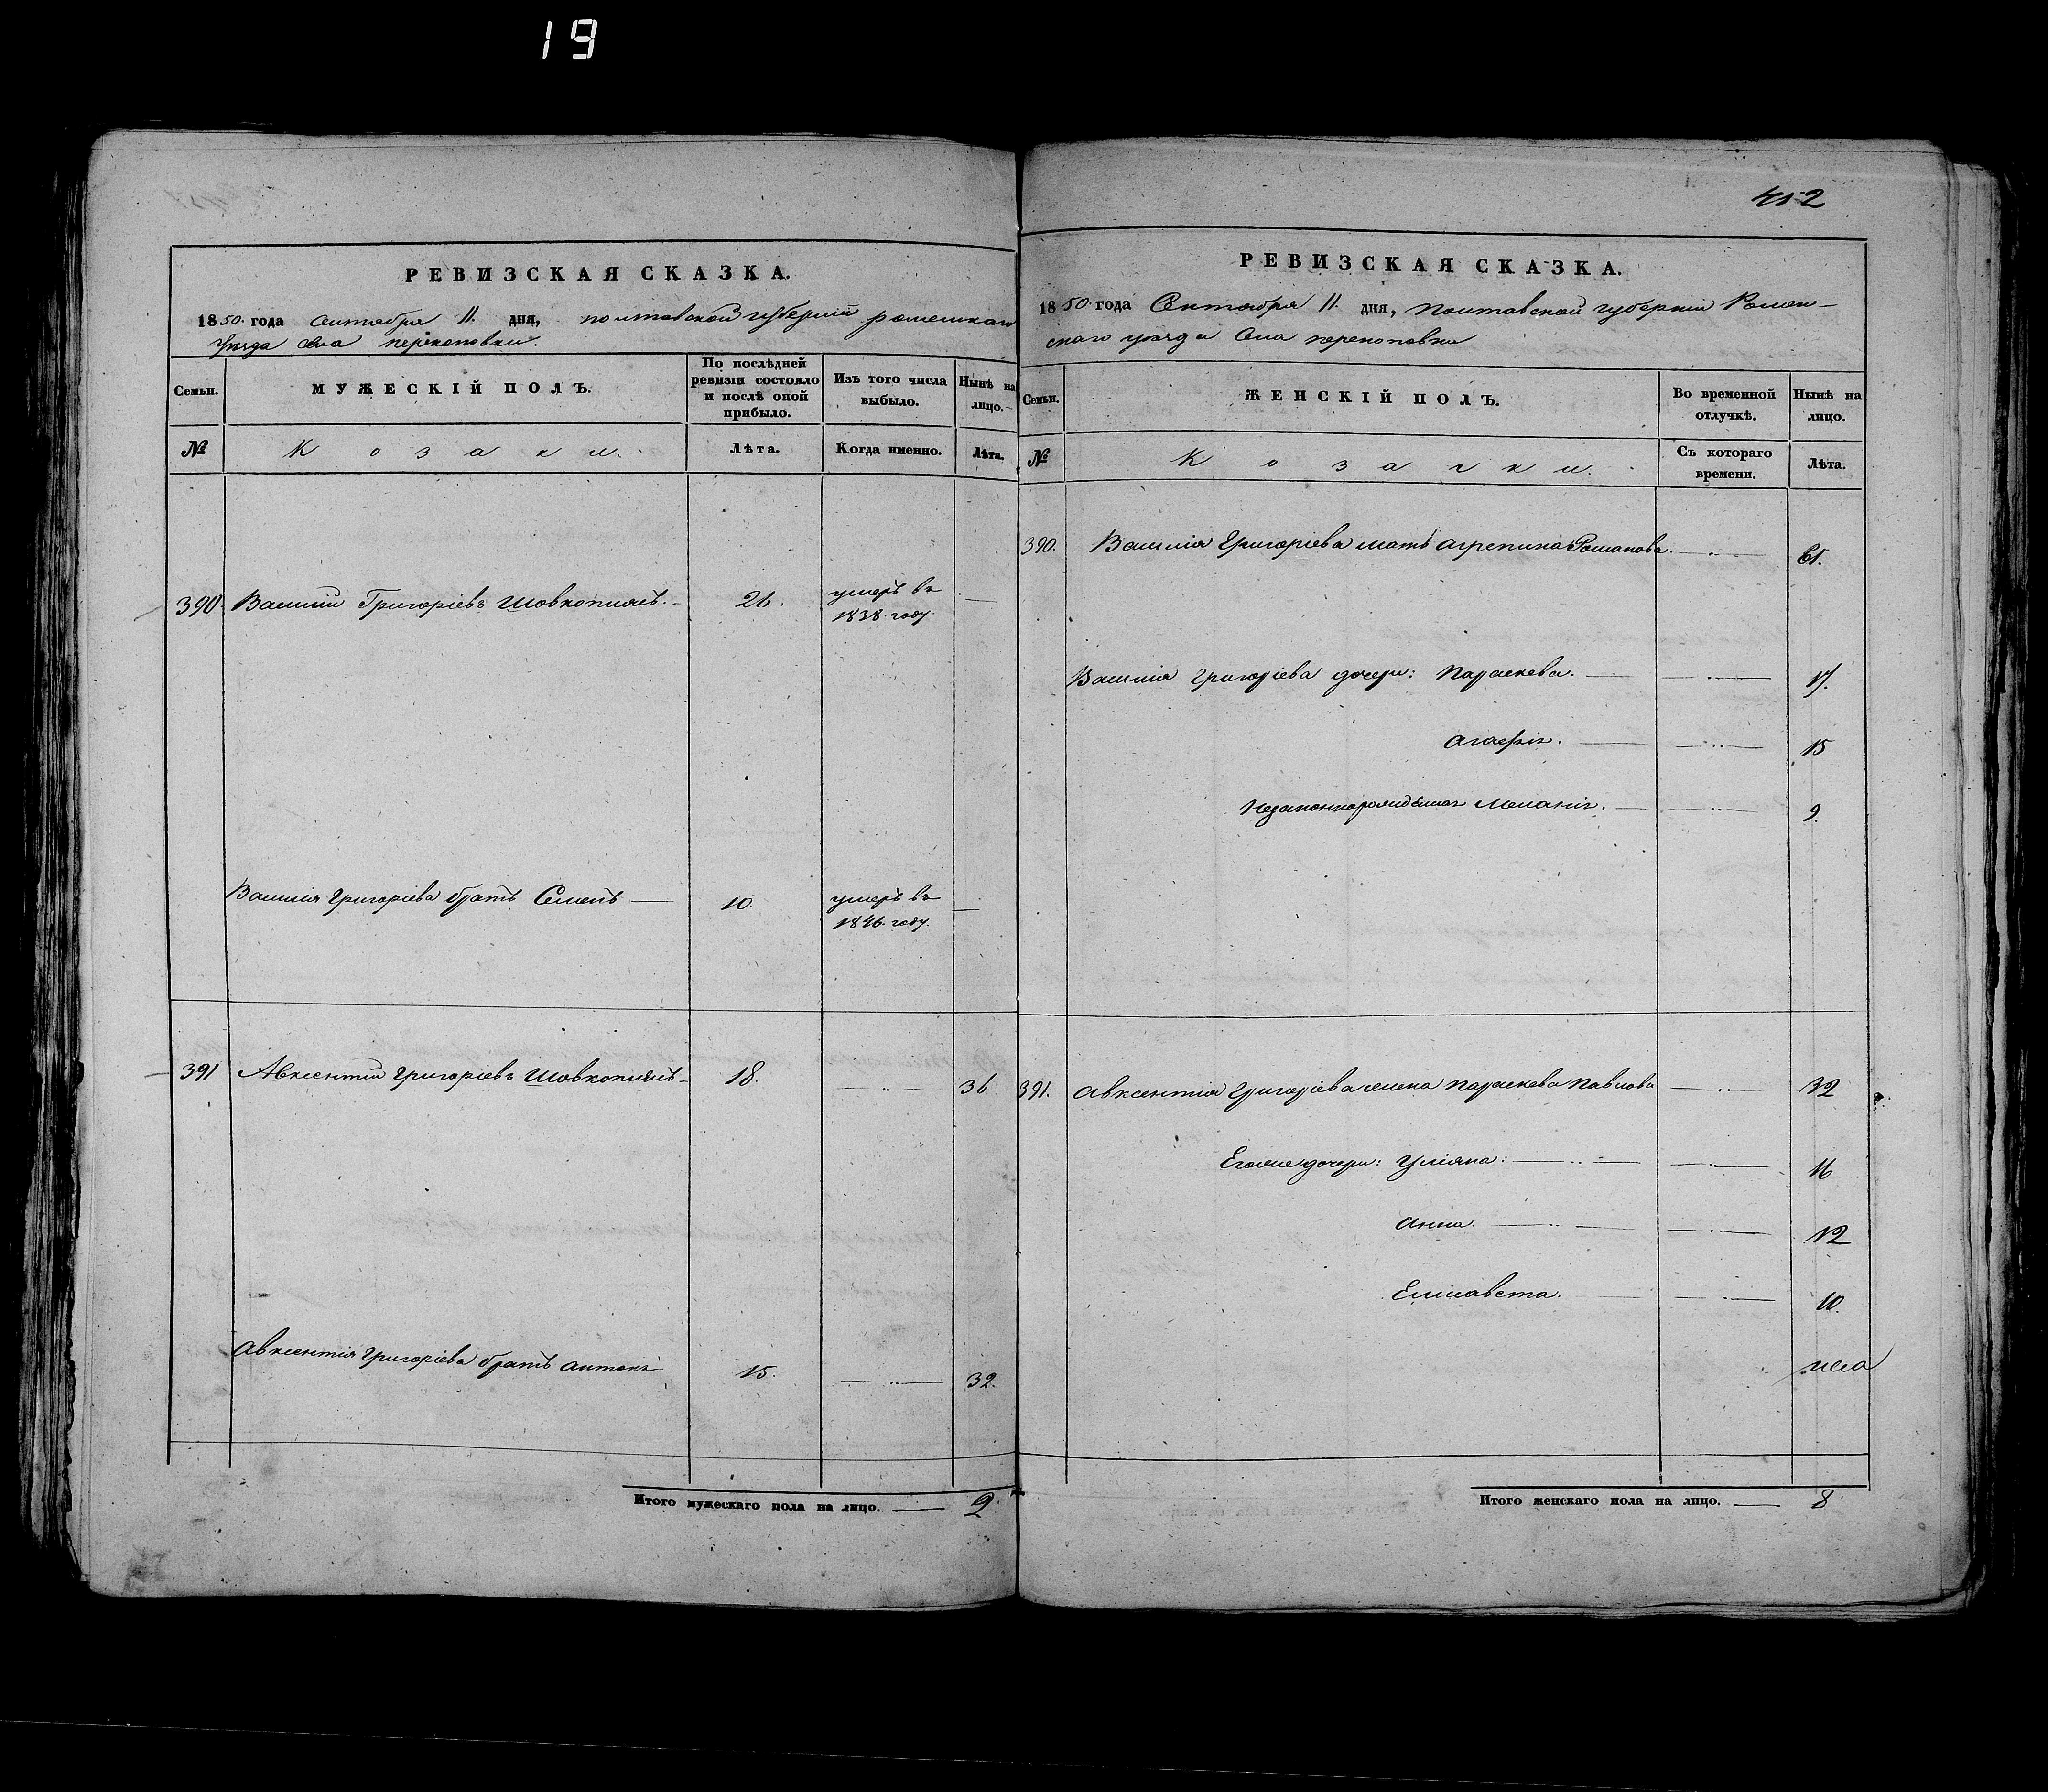 19
РЕВИЗСКАЯ СКАЗКА.
1850 года Сентября 11. дня, Полтавской губерніи Роменскаго
уезда Села Перекоповки.
Семьи.
МУЖЕСКІЙ ПОЛЪ.
По послѣдней ревизіи состояло и послѣ оной прибыло.
Изъ того числа выбыло.
Нынѣ на лицо.
№
Козаки.
Лѣта.
Когда именно.
Лѣта.
390. Василий Григоріевъ Шовкоплясъ. 26. умеръ въ
1838. году.
Василія Григоріева братъ Семенъ 10. умеръ въ
1846. году.
391 Авксентий Григоріевъ Шовкоплясъ 18. 36
Авксентія Григоріева братъ Антонъ 15. 32.
Итого мужескаго пола на лицо. 2.
452
РЕВИЗСКАЯ СКАЗКА.
1850. года Сентября 11. дня, Полтавской губерніи Ромен-
скаго уезда Села Перекоповки
Семьи.
ЖЕНСКІЙ ПОЛЪ.
Во временной отлучкѣ.
Нынѣ на лицо.
№
Козачки.
Съ котораго времени.
Лѣта.
390. Василія Григоріева мать Агрепина Романова. 61.
Василія Григоріева дочери: Параскева. 17.
Агафія. 15
Незаконнорожденная Меланія. 9.
391. Авксентія Григоріева жена Параскева Павлова 32
Егоже дочери: Уліяна: 16
Анна. 12
Елисавета. 10.
Итого женскаго пола на лицо. 8